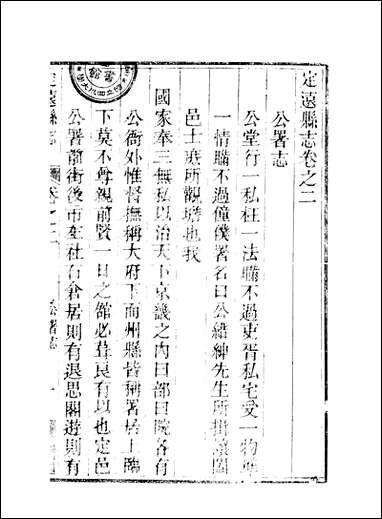 定遠縣志卷之二
公署志
公堂行一私枉一法瞞不過吏胥私宅受一物
一情瞞不過僮僕署名曰公縉紳先生所
邑士庶所觀瞻也我
國家奉三無私以治天下京畿之內曰部曰院各有
公衙外惟督撫稱大府下而州縣皆稱署居上臨
下莫不尊親前賢一日之館必葺良有以也定邑
公署前街後市左社右倉居則有退思閣遊則有
定遠縣志
卷之二
公署志
一